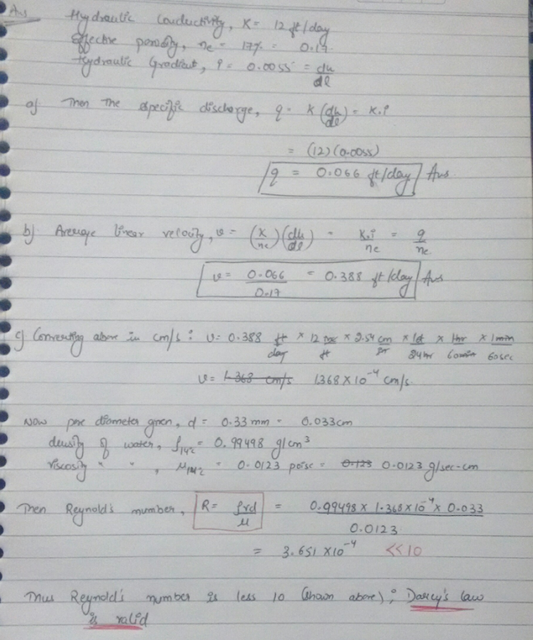 Ans Hydraulic Conductivity, K = 12 ft/day
Effective porosity, ne = 17% = 0.17
Hydraulic Gradient, i = 0.0055 = dh/dl
a) Then the specific discharge, q = K (dh/dl) = K.i
= (12)(0.0055)
q = 0.066 ft/day Ans
b) Average linear velocity, v = (K/ne)(dh/dl) = K.i/ne = q/ne
v = 0.066/0.17 = 0.388 ft/day Ans
c) Converting above in cm/s : v = 0.388 ft/day × 12 /ft × 2.54 cm/ × 1d/24hr × 1hr/60min × 1min/60sec
v = 1.368 cm/s 1.368 × 10⁻⁴ cm/s
Now pore diameter given, d = 0.33 mm = 0.033cm
density of water, = 0.99498 g/cm³
viscosity " ", = 0.0123 poise = 0.123 0.0123 g/sec-cm
Then Reynold's number, R = ρvd/μ = 0.99498 × 1.368×10⁻⁴ × 0.033/0.0123
= 3.651 × 10⁻⁴ <<10
Thus Reynold's number is less 10 (shown above) ; Darcy's law
is valid